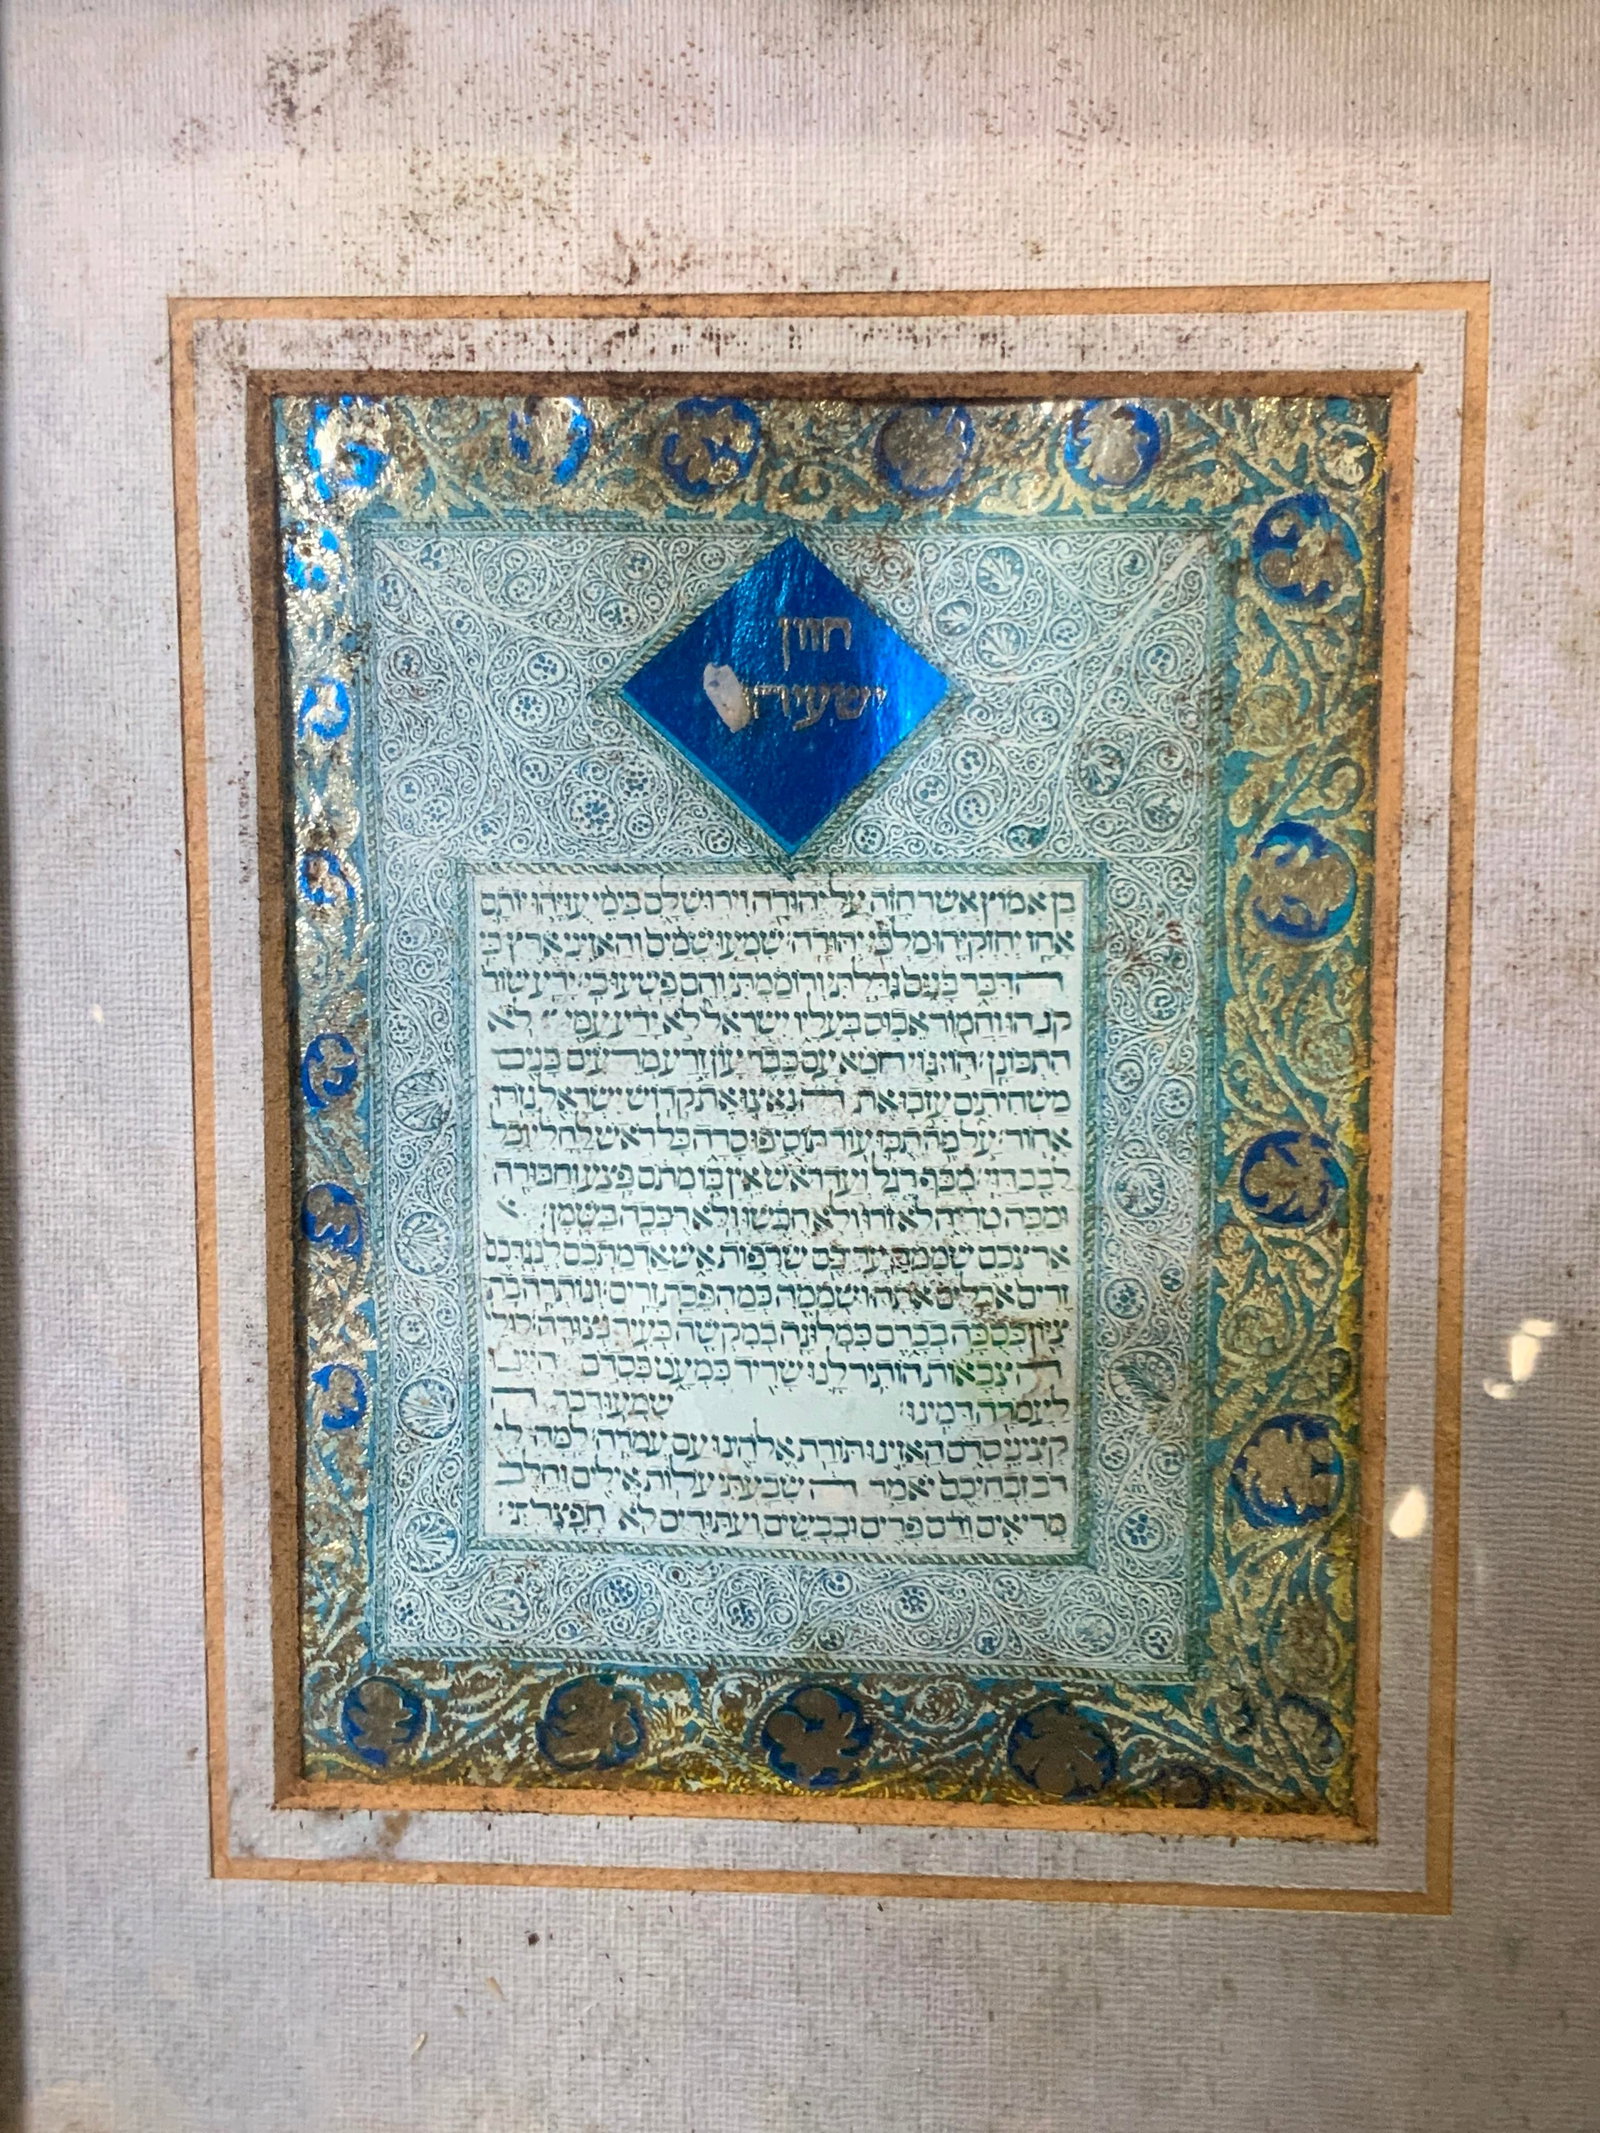 חזון
ישעיהו
בן אמוץ אשר חזה על יהודה וירושלם בימי עזיהו יותם
אחז יחזקיהו מלכי יהודה: שמעו שמים והאזיני ארץ כי
יהוה דבר בנים גדלתי ורוממתי והם פשעו בי: ידע שור
קנהו וחמור אבוס בעליו ישראל לא ידע עמי לא
התבונן: הוי גוי חטא עם כבד עון זרע מרעים בנים
משחיתים עזבו את יהוה נאצו את קדוש ישראל נזרו
אחור: על מה תכו עוד תוסיפו סרה כל ראש לחלי וכל
לבב דוי: מכף רגל ועד ראש אין בו מתם פצע וחבורה
ומכה טריה לא זרו ולא חבשו ולא רככה בשמן:
ארצכם שממה עריכם שרפות אש אדמתכם לנגדכם
זרים אכלים אתה ושממה כמהפכת זרים: ונותרה בת
ציון כסכה בכרם כמלונה במקשה כעיר נצורה: לולי
יהוה צבאות הותיר לנו שריד כמעט כסדם היינו
לעמרה דמינו: שמעו דבר יהוה
קציני סדם האזינו תורת אלהינו עם עמרה: למה לי
רב זבחיכם יאמר יהוה שבעתי עלות אילים וחלב
מריאים ודם פרים וכבשים ועתודים לא חפצתי: